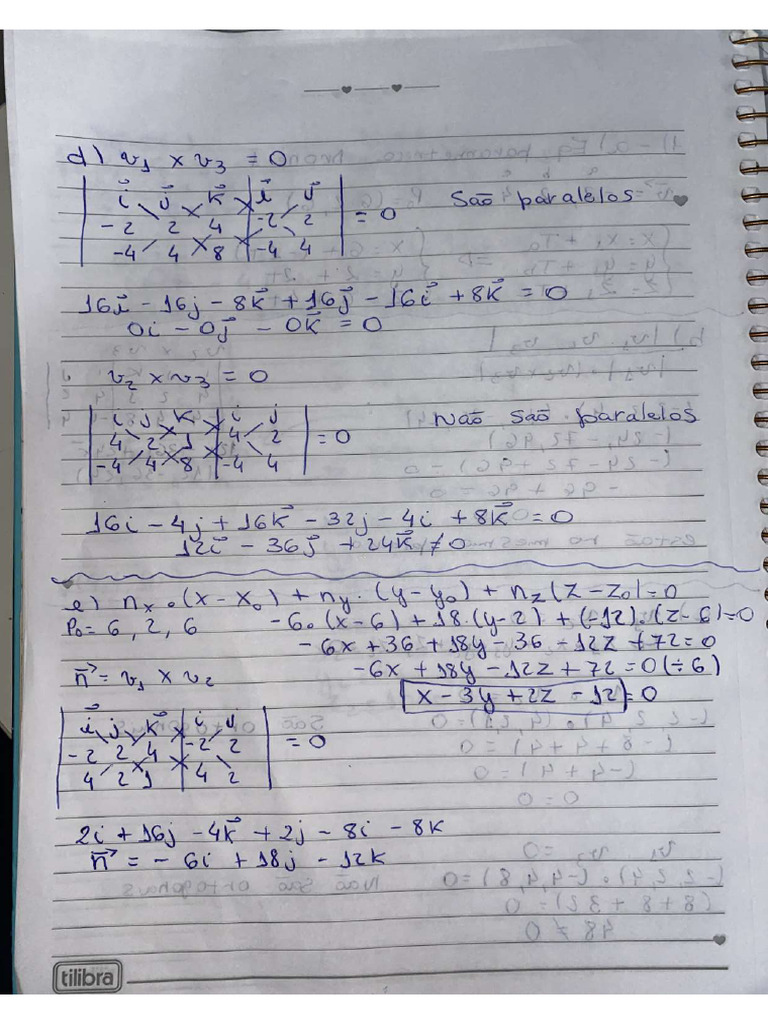 d) v₁ × v₃ = 0
i⃗ j⃗ k⃗ i⃗ j⃗
-2 2 4 -2 2 = 0 São paralelos
-4 4 8 -4 4
16i⃗ - 16j - 8k⃗ + 16j⃗ - 16i⃗ + 8k⃗ = 0
0i - 0j⃗ - 0k⃗ = 0
v₂ × v₃ = 0
i j k i j Não são paralelos
4 2 1 4 2 = 0
-4 4 8 -4 4
16i - 4j + 16k⃗ - 32j - 4i + 8k⃗ = 0
12i⃗ - 36j⃗ + 24k⃗ ≠ 0
e) nx . (x - x₀) + ny . (y - y₀) + nz (z - z₀) = 0
P₀ = 6, 2, 6 -6 . (x - 6) + 18 . (y - 2) + (-12) . (z - 6) = 0
-6x + 36 + 18y - 36 - 12z + 72 = 0
n⃗ = v₁ × v₂ -6x + 18y - 12z + 72 = 0 (÷6)
x - 3y + 2z - 12 = 0
i⃗ j k⃗ i j
-2 2 4 -2 2 = 0
4 2 1 4 2
2i + 16j - 4k⃗ + 2j - 8i - 8k
n⃗ = -6i + 18j - 12k
tilibra